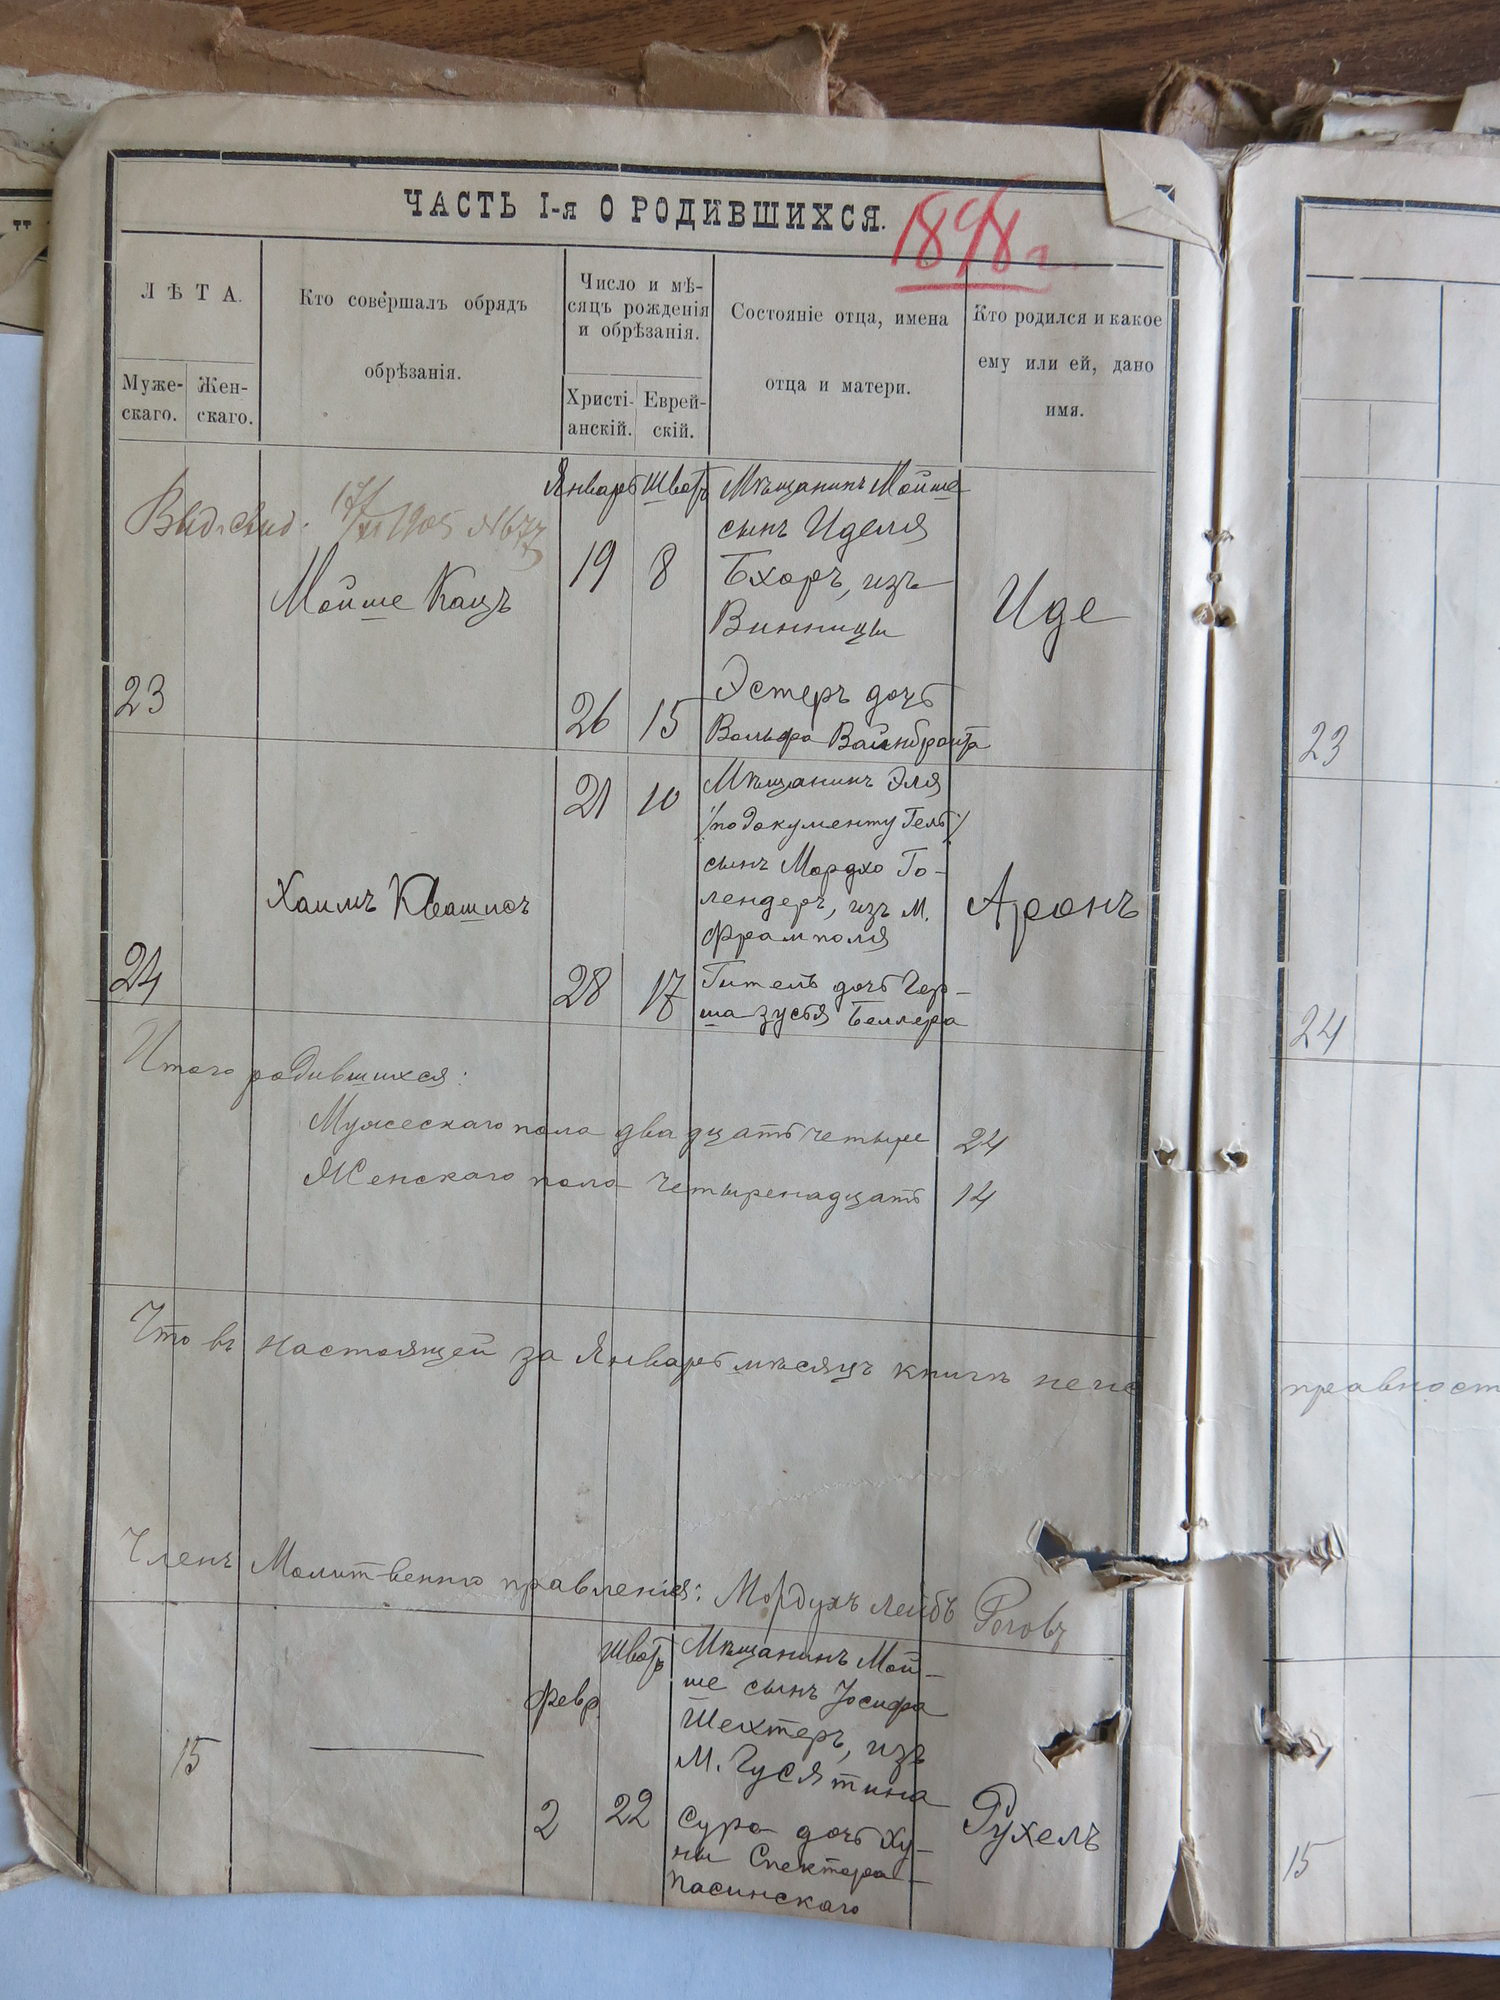 ЧАСТЬ I-я О РОДИВШИХСЯ.
1898 г.
ЛѢТА.
Муже-
скаго.
Жен-
скаго.
Кто совершалъ обрядъ
обрѣзанія.
Число и мѣ-
сяцъ рожденія
и обрѣзанія.
Христі-
анскій.
Еврей-
скій.
Состояніе отца, имена
отца и матери.
Кто родился и какое
ему или ей, дано
имя.
Выд. свид. 1905 №
23
Мойше Кацъ
Январь
19
26
Шватъ
8
15
Мѣщанинъ Мойше
сынъ Иделя
Бхоръ, изъ
Винницы
Эстеръ дочь
Вольфа Вайнбранта
Иде
23
24
Хаимъ Квашисъ
21
28
10
17
Мѣщанинъ Эля
/по документу Гель/
сынъ Мордхо Го-
лендеръ, изъ м.
Фрамполя
Гитель дочь Гер-
ша Зуся Беллера
Аронъ
24
Итого родившихся:
Мужескаго пола двадцать четыре 24
Женскаго пола четыренадцать 14
Что въ настоящей за Январь мѣсяцъ книгѣ неис
правност
Членъ Молитвеннго правленія: Мордухъ Лейбъ Роговъ
15
Февр.
2
Шватъ
22
Мѣщанинъ Мой-
ше сынъ Іосифа
Шехтеръ, изъ
м. Гусятина
Сура дочь Ху-
ны Спектера-
Пасинскаго
Рухель
15